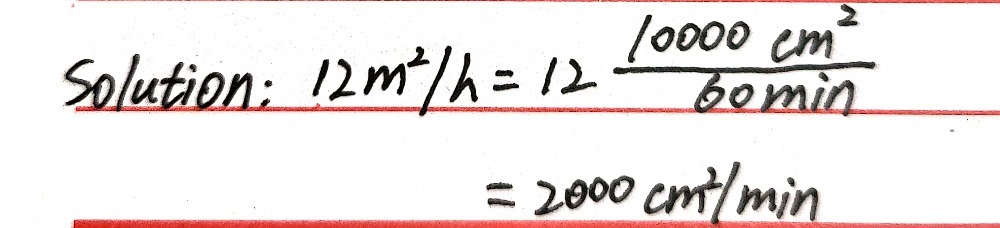 Solution: 12m²/h = 12 10000 cm²/60min
= 2000 cm²/min